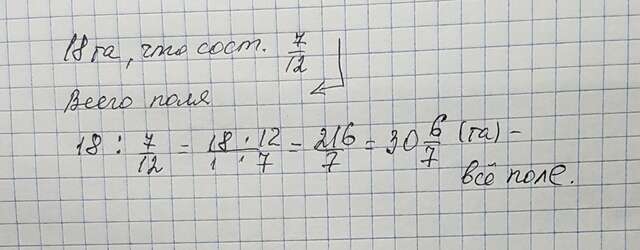 18 га, что сост. 7/12
Всего поля
18 : 7/12 = 18 · 12 / 1 · 7 = 216/7 = 30 6/7 (га) –
всё поле.